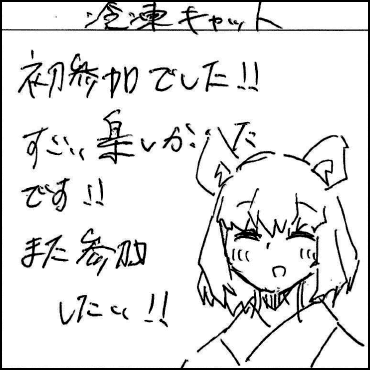 冷凍キャット
初参加でした!!
すごい楽しかった
です!!
また参加
したい!!